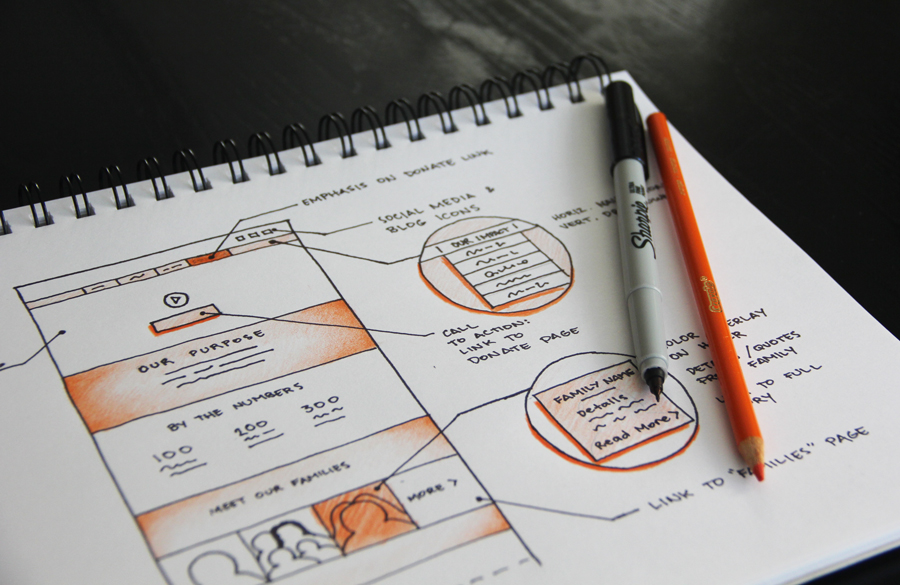 EMPHASIS ON DONATE LINK
SOCIAL MEDIA &
BLOG ICONS
OUR IMPACT
HORIZ.
VERT.
CALL
TO ACTION:
LINK TO
DONATE PAGE
OUR PURPOSE
BY THE NUMBERS
100 200 300
MEET OUR FAMILIES
MORE >
FAMILY NAME
Details
Read More >
ON
/QUOTES
FAMILY
TO FULL
LINK TO "FAMILIES" PAGE
Sharpie